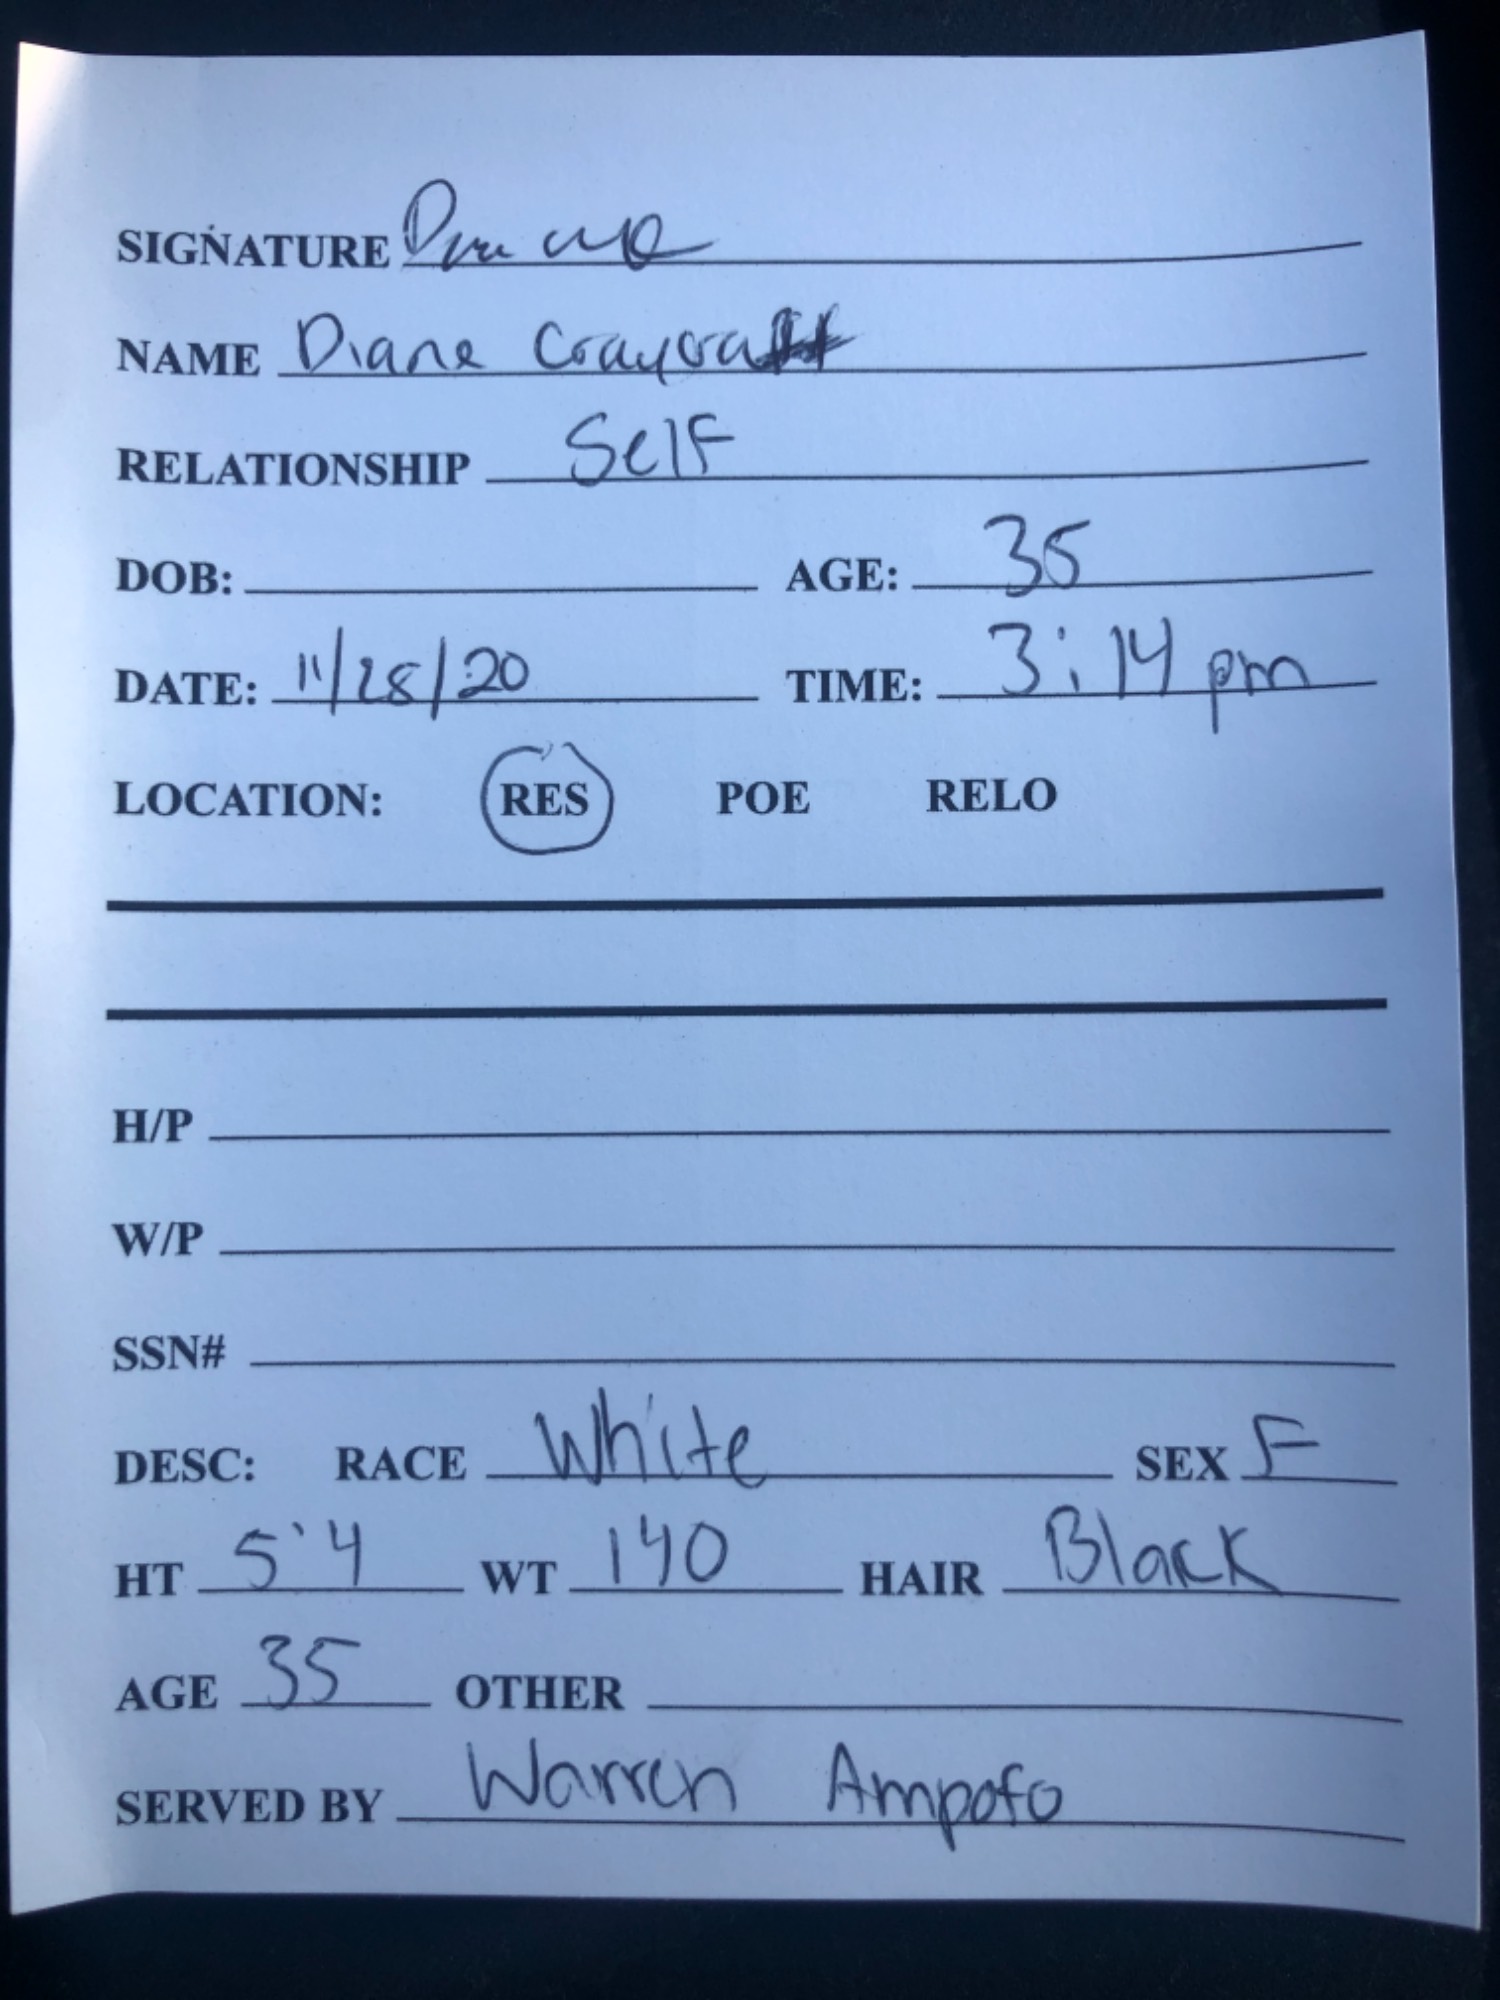 SIGNATURE
NAME Diane Craycraft
RELATIONSHIP Self
DOB: AGE: 35
DATE: 11/28/20 TIME: 3:14 pm
LOCATION: RES POE RELO
H/P
W/P
SSN#
DESC: RACE White SEX F
HT 5'4 WT 140 HAIR Black
AGE 35 OTHER
SERVED BY Warren Ampofo